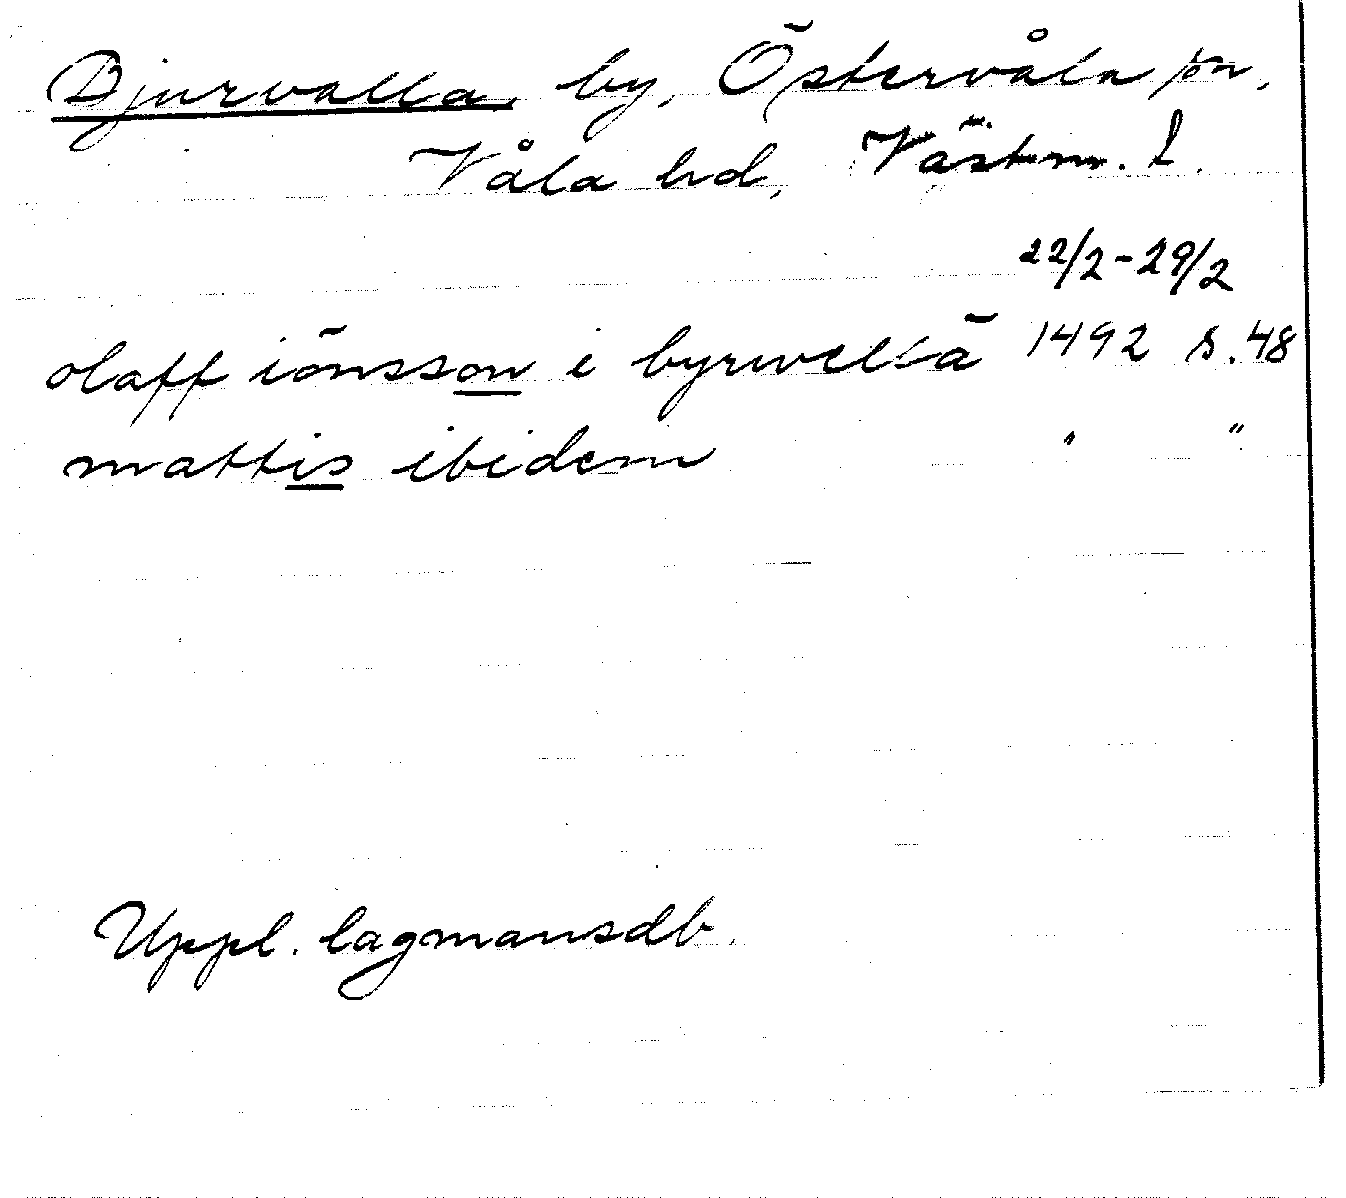 Djurvalla, by, Östervåla sn,
Våla hd, Västm. l.
22/2-29/2
olaff iönsson i byrwellä 1492 s.48
mattis ibidem " "
Uppl. lagmansdb.